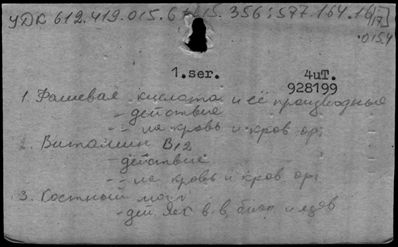 УДК 612.419.015.6 15.356:577.164.16
.015.4
1.ser. 4uT.
928199
1. Фолиевая кислота и её производные
- действие
- " - на кровь и кров орг
2. Витамин В12
- действие
- " - на кровь и кров орг
3. Костный мозг
- дей